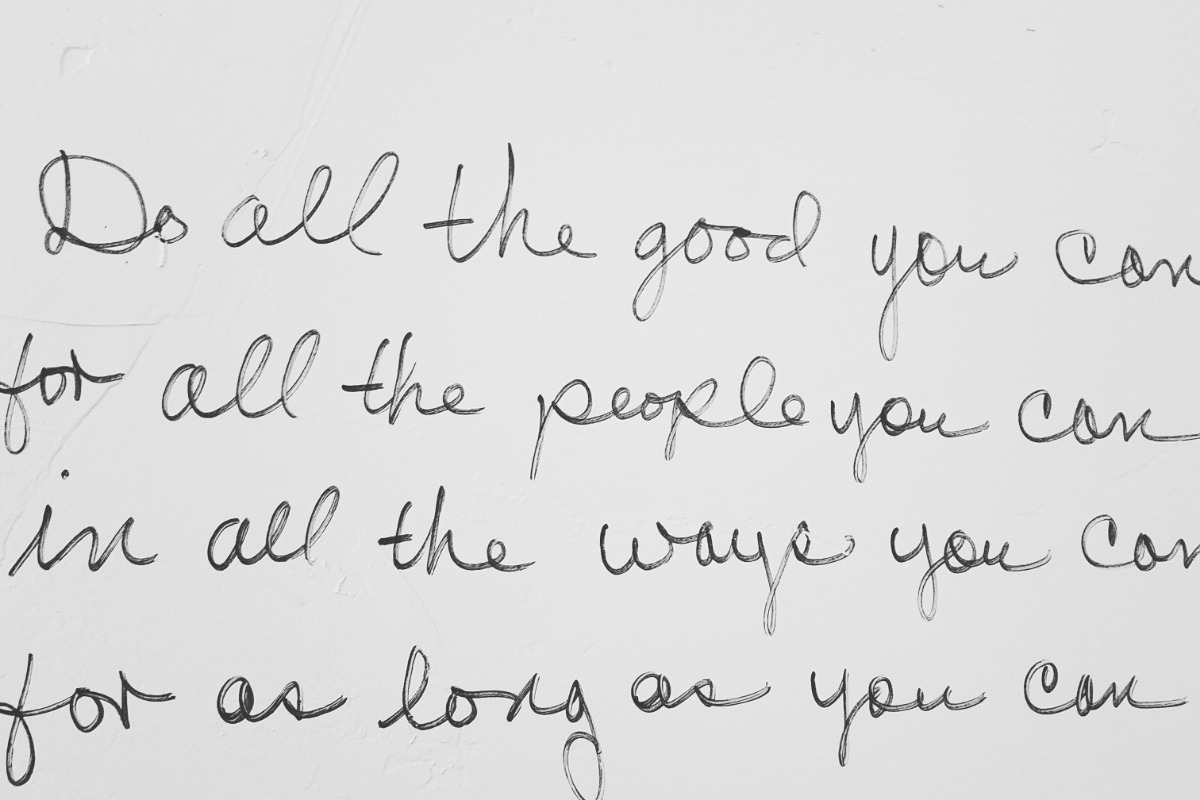 Do all the good you can
for all the people you can
in all the ways you can
for as long as you can